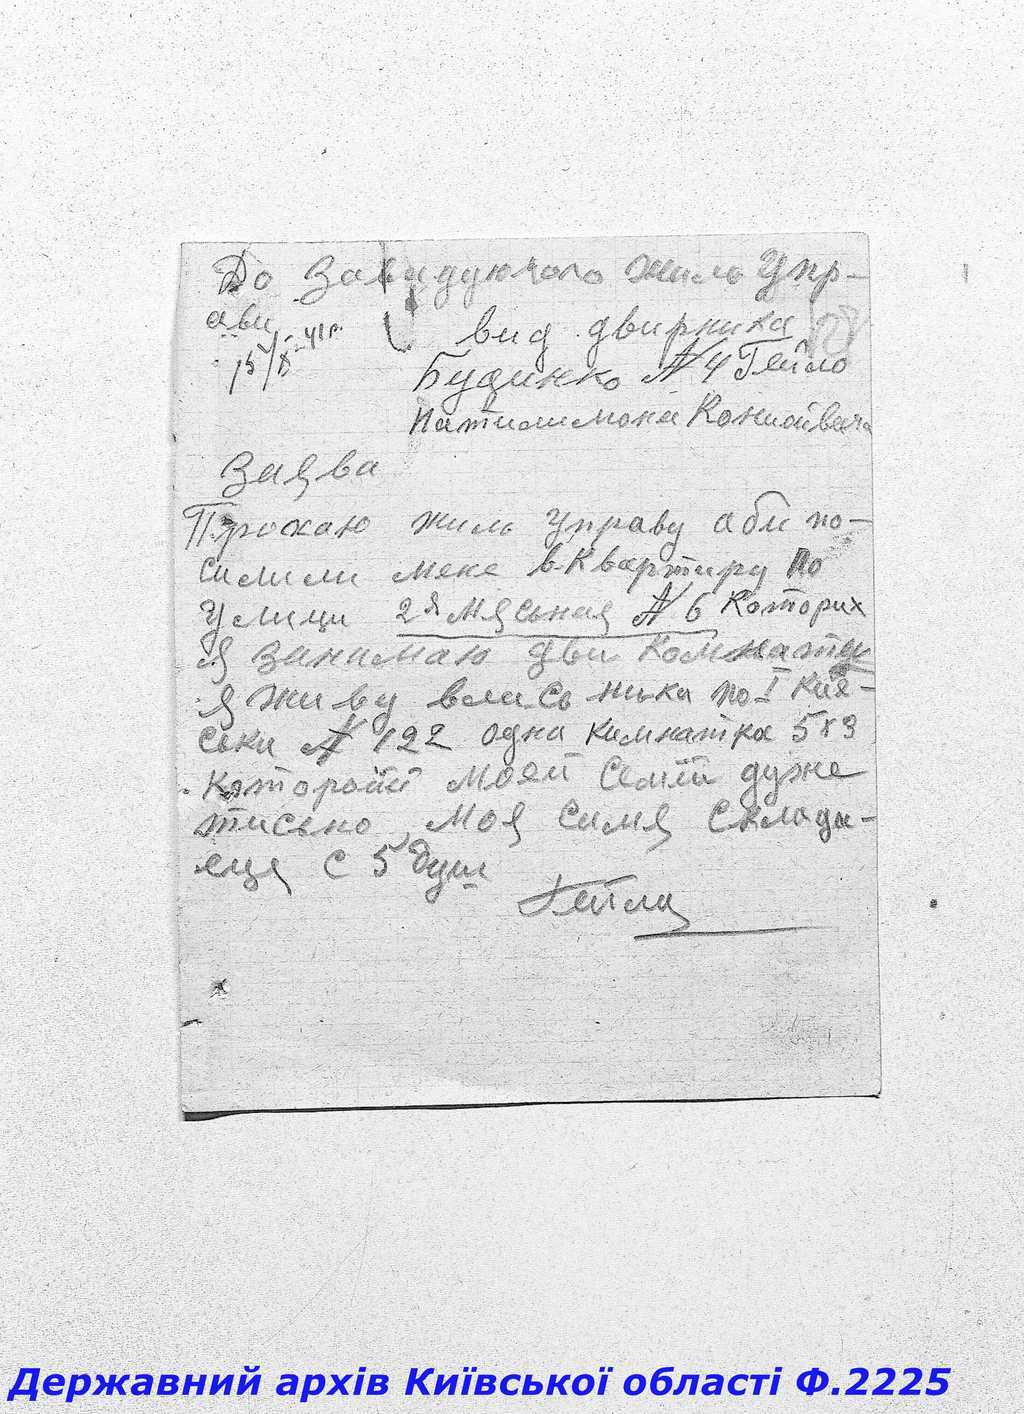 До Завидуючого жиль Упр-
ави
15/X-41 г.
вид двирника
Будинко № 4 Гейло
Патилимона
Заява
Прохаю жиль управу аби по-
силили мене в квартиру по
улици 2я Мясьная № 6 Которих
я занимаю дви комнати
я живу по I Кия-
ськи № 122 одна кимнатка 5х3
которойй моей семйи дуже
тисьно, Моя симя склада-
еця с 5 душ
Гейло
Державний архів Київської області Ф.2225